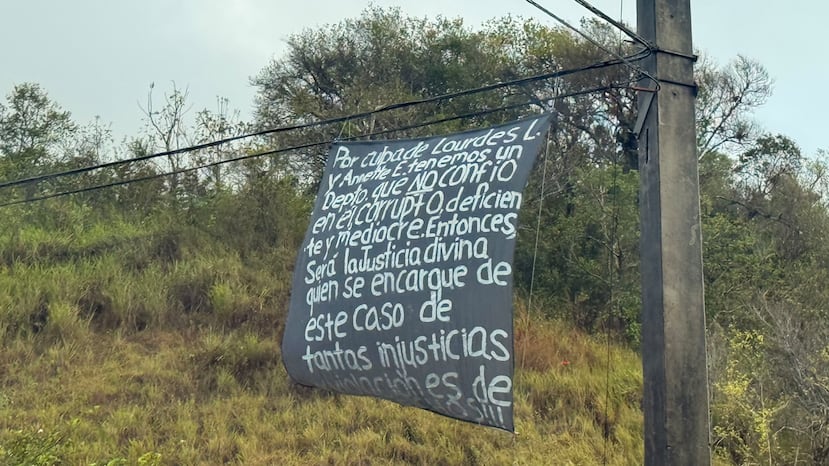 Por culpa de Lourdes L.
y Annette E. tenemos un
Depto. que NO confío
en él, corrupto, deficien
te y mediocre. Entonces,
Será la Justicia divina
quien se encargue de
este caso de
tantas injusticias
violaciones de